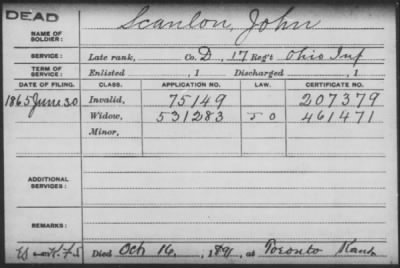 DEAD
NAME OF SOLDIER: Scanlon, John
SERVICE: Late rank, Co. D, 17 Reg't Ohio Inf
TERM OF SERVICE: Enlisted , 1 Discharged , 1
DATE OF FILING. CLASS. APPLICATION NO. LAW. CERTIFICATE NO.
1865 June 30 Invalid, 75149 207379
Widow, 531283 461471
Minor,
ADDITIONAL SERVICES:
REMARKS:
Died Oct 16, 1891, at Toronto Kans